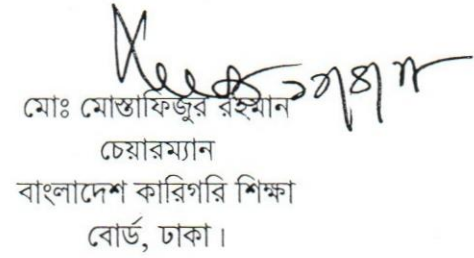 মোঃ মোস্তাফিজুর রহমান
চেয়ারম্যান
বাংলাদেশ কারিগরি শিক্ষা
বোর্ড, ঢাকা।